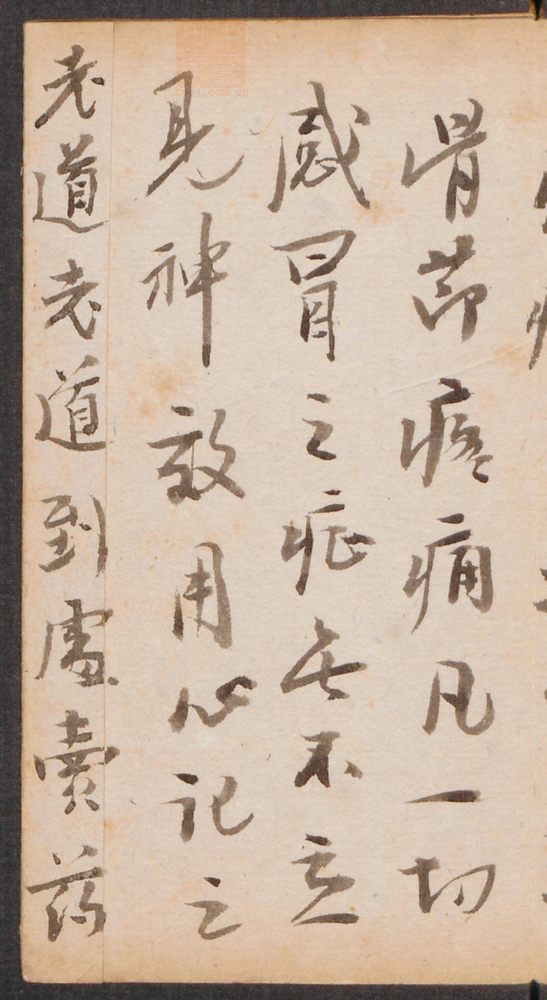 骨节疼痛凡一切
感冒之症无不立
見神效用心记之
老道老道到處賣药